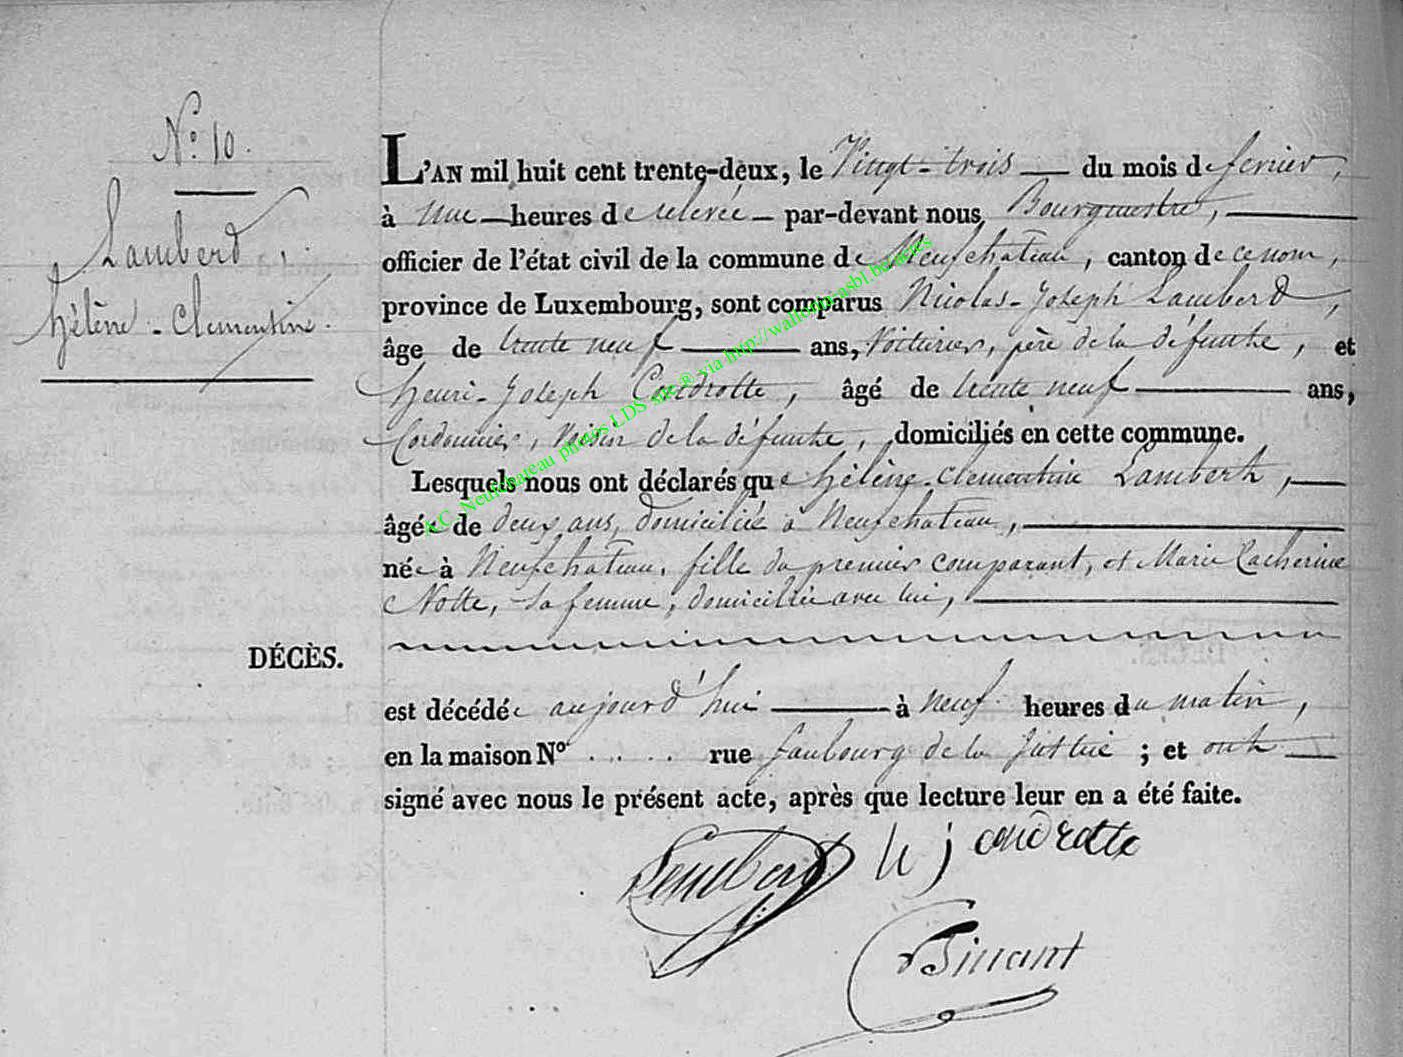 N.º 10.
Lamberd,
Hélène-Clementine.
L'AN mil huit cent trente-deux, le Vingt-trois du mois de fevrier,
à une heures de relevée par-devant nous, Bourgmestre,
officier de l'état civil de la commune de Neufchateau, canton de ce nom,
province de Luxembourg, sont comparus Nicolas-Joseph Lamberd,
âge de trente neuf ans, Voiturier, père de la défunte, et
Henri-Joseph Condrotte, âgé de trente neuf ans,
Cordonnier, voisin de la défunte, domiciliés en cette commune.
Lesquels nous ont déclarés que hélène-clementine Lambert,
âgée de deux ans, domiciliée à Neufchateau,
née à Neufchateau, fille du premier comparant, et Marie Catherine
Notte, sa femme, domiciliée avec lui,
DÉCÈS.
est décédée aujourd'hui à neuf heures du matin,
en la maison Nº . . . . rue faubourg de la Justice ; et ont
signé avec nous le présent acte, après que lecture leur en a été faite.
Lamberd h j condrotte
A.C. Neufchateau photos LDS site ® via http://wallonia.asbl.be